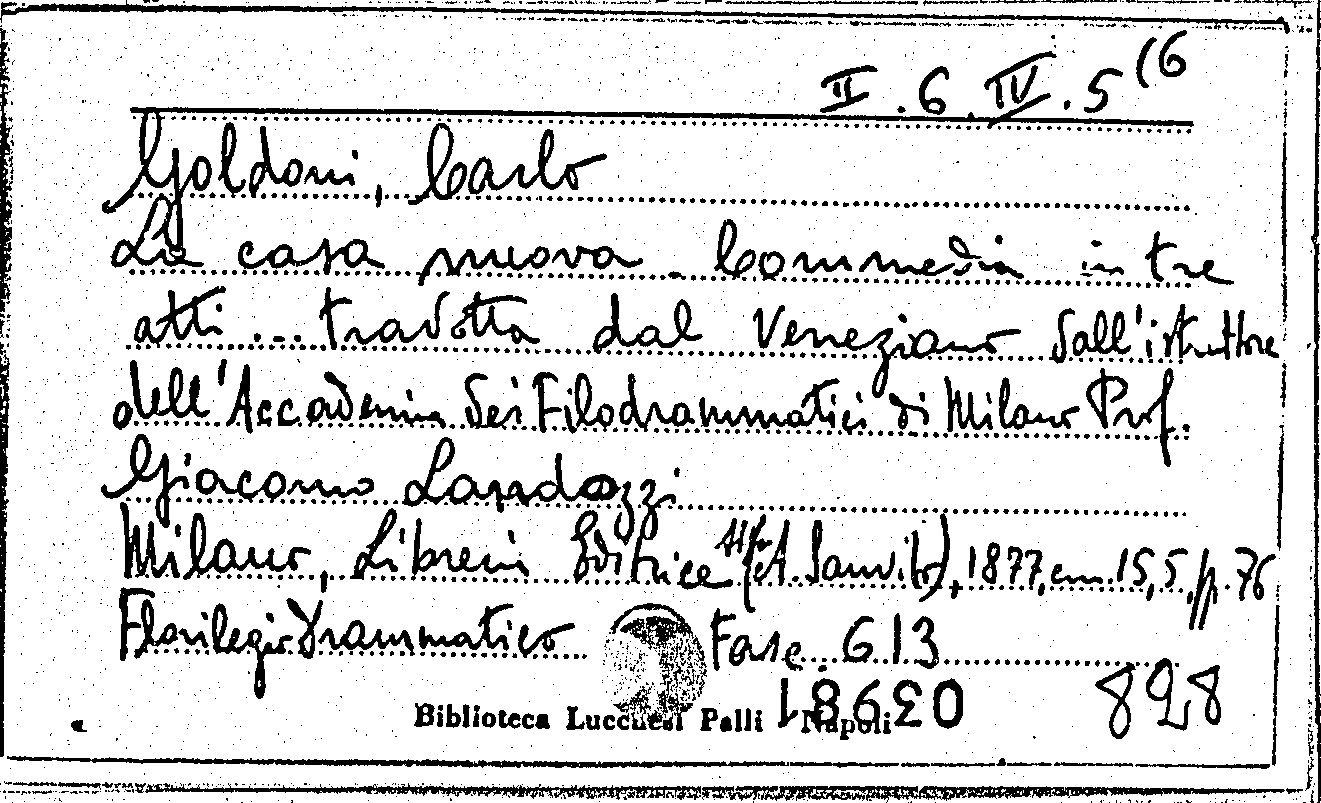 II.6.IV.5(6
Goldoni, Carlo
La casa nuova. Commedia in tre
atti... tradotta dal Veneziano dall'istruttore
dell'Accademia dei Filodrammatici di Milano Prof.
Giacomo Landozzi
Milano, Libreria Editrice (A. Sanvito), 1877, cm. 15,5, pp. 76
Florilegio Drammatico Fasc. 613
039681 828
Biblioteca Lucchesi Palli Napoli